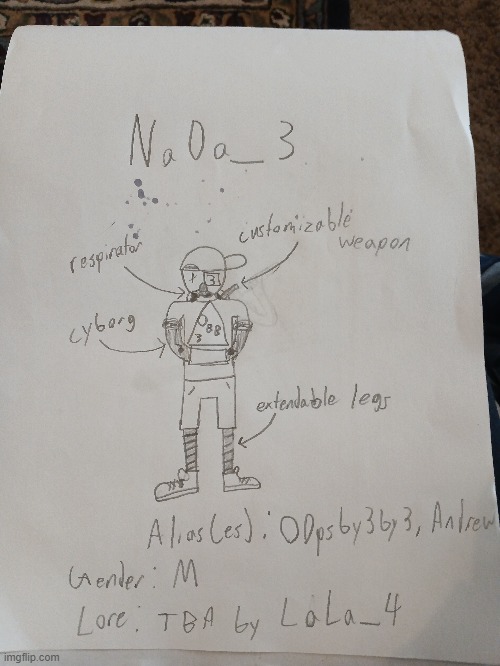 NaDa_3
customizable
weapon
respirator
cyborg
extendable legs
Alias(es): ODps6y3by3, Andrew
Gender: M
Lore: TBA by LaLa_4
imgflip.com